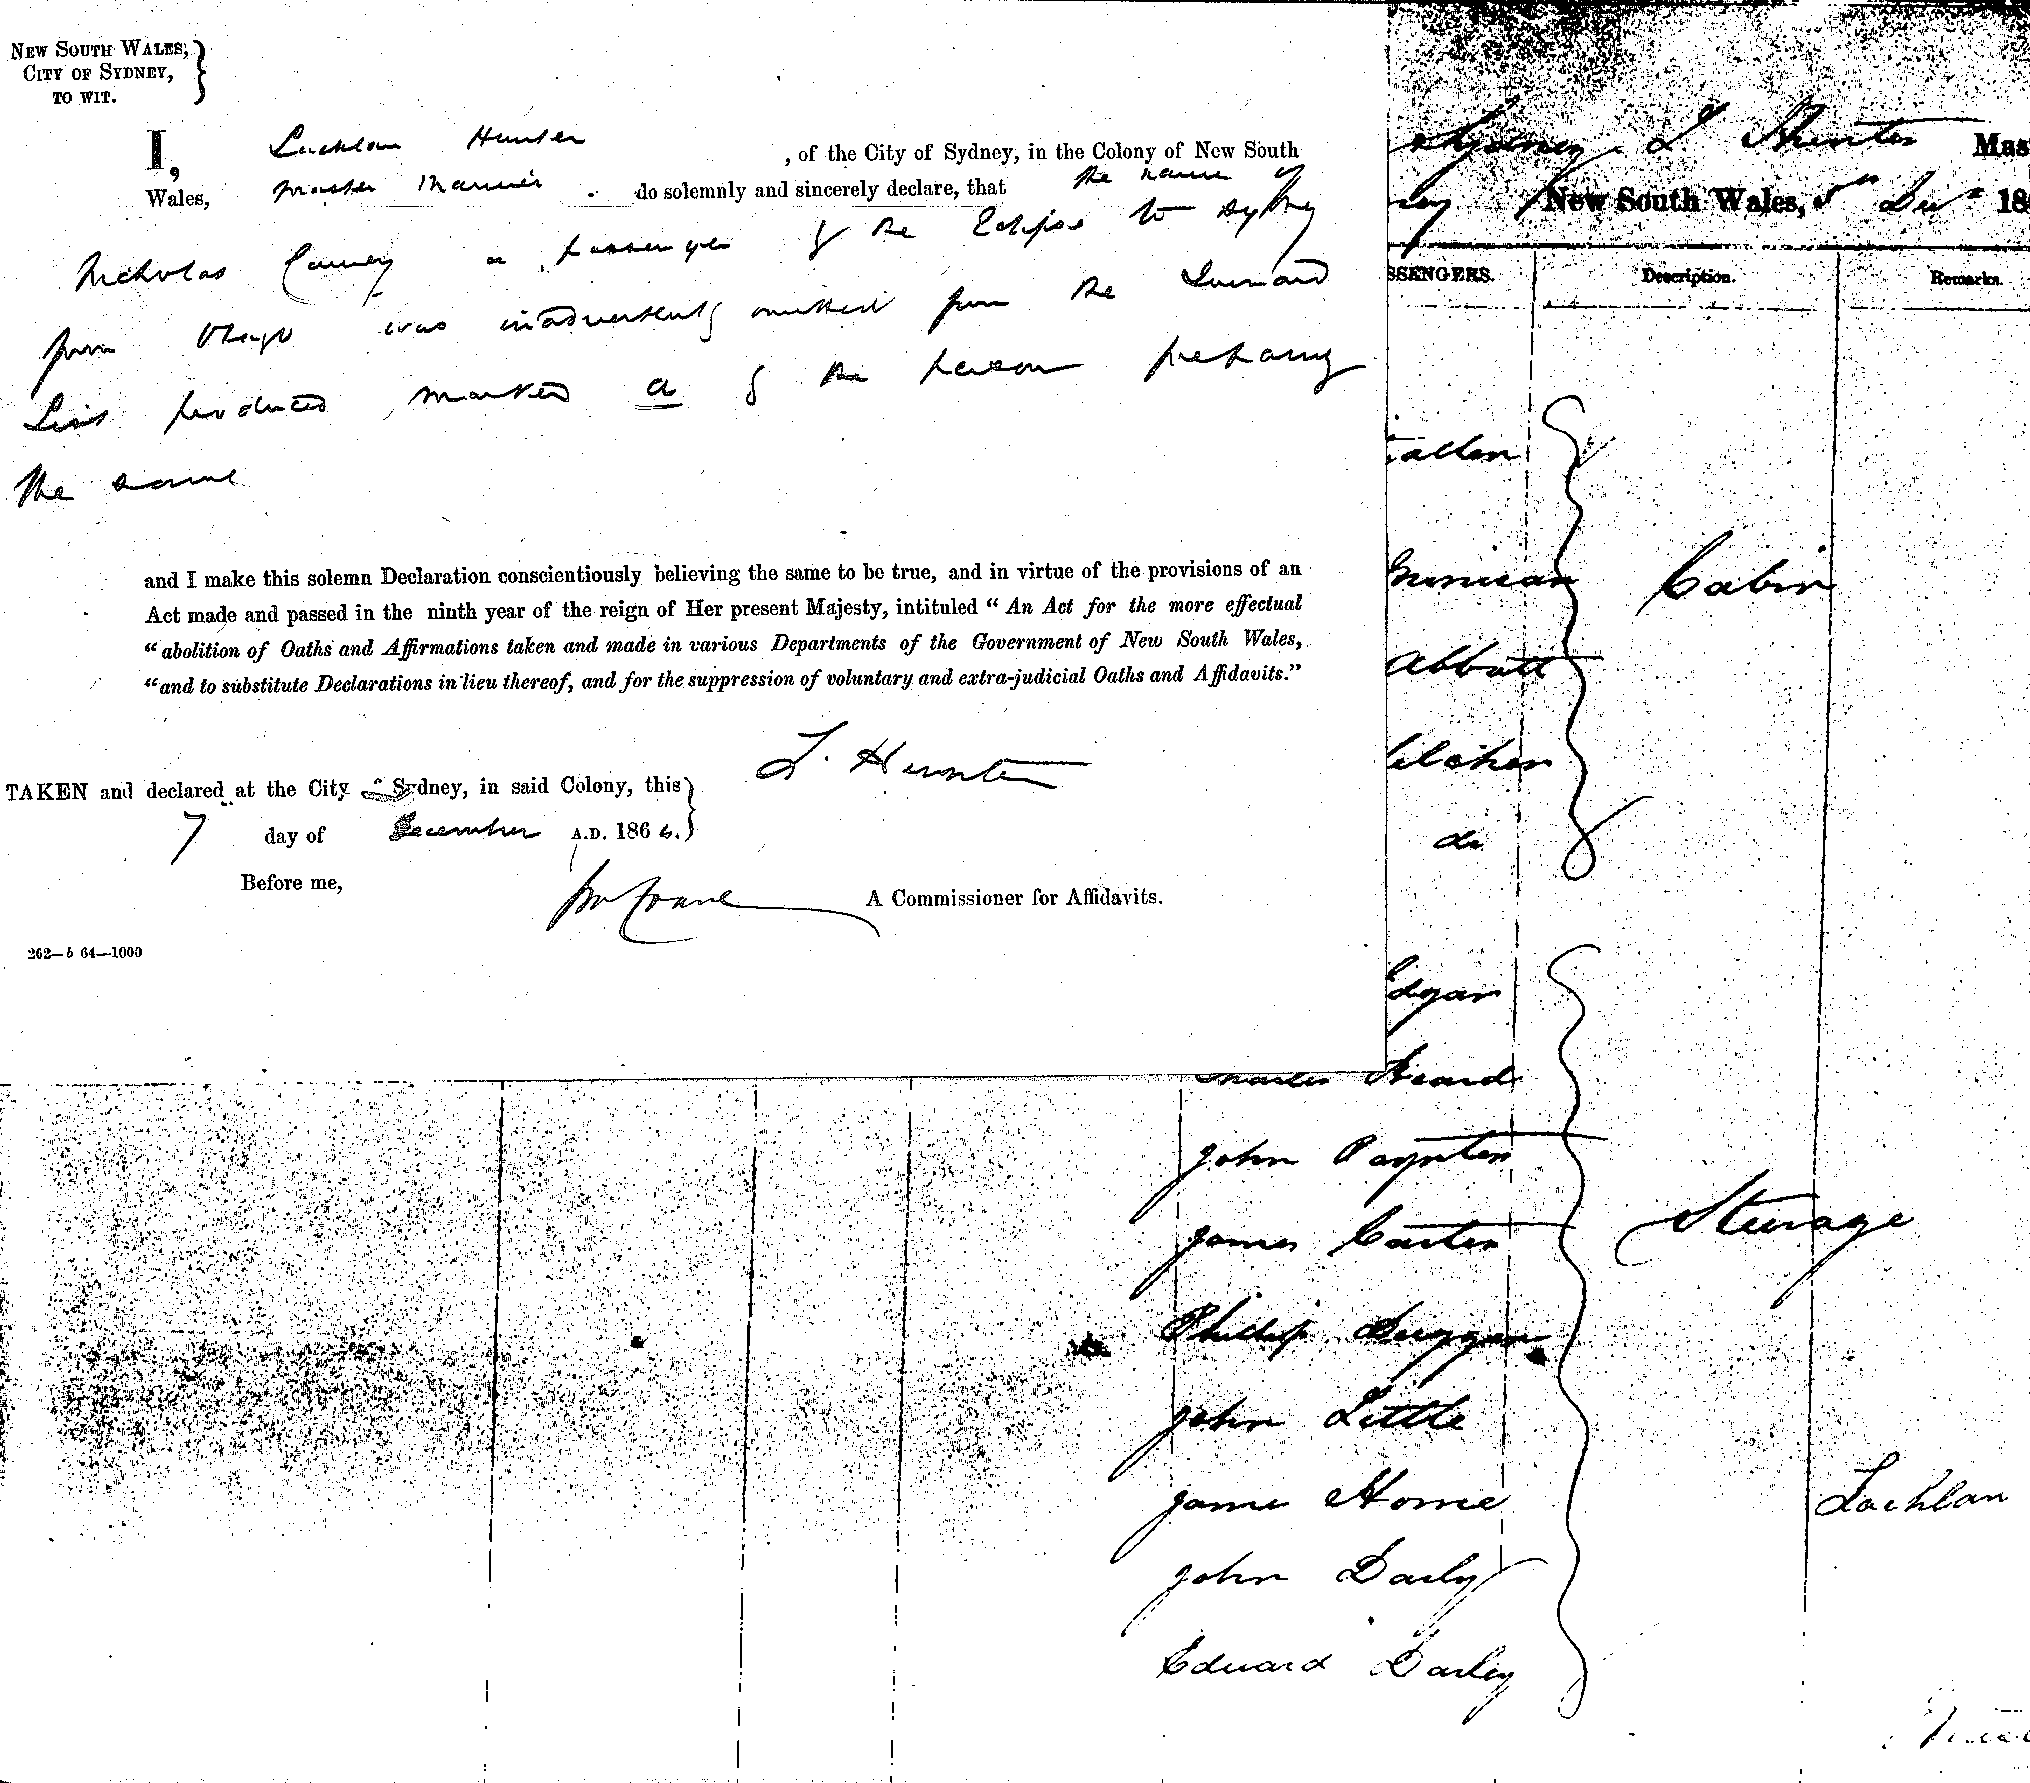 NEW SOUTH WALES,
CITY OF SYDNEY,
TO WIT.
I, Lachlan Hunter, of the City of Sydney, in the Colony of New South
Wales, Master Mariner do solemnly and sincerely declare, that the name of
Nicholas a passenger of the Eclipse to Sydney
from Otago was inadvertently omitted from the Inward
List produced, marked a by the person preparing
the same
and I make this solemn Declaration conscientiously believing the same to be true, and in virtue of the provisions of an
Act made and passed in the ninth year of the reign of Her present Majesty, intituled “ An Act for the more effectual
“ abolition of Oaths and Affirmations taken and made in various Departments of the Government of New South Wales,
“ and to substitute Declarations in lieu thereof, and for the suppression of voluntary and extra-judicial Oaths and Affidavits.”
L. Hunter
TAKEN and declared at the City of Sydney, in said Colony, this
7 day of December A.D. 186
Before me,
A Commissioner for Affidavits.
262—b 64—1000
Sydney L Hunter Mas
ney New South Wales, 5th Decr 18
SSENGERS. Description. Remarks.
Cabin
Abbott
do
Edgar
Charles Heard
John Paynter
James Carter
Steerage
Phillip Duggan
John Little
James Horne
Lachlan
John Darly
Edward Darley